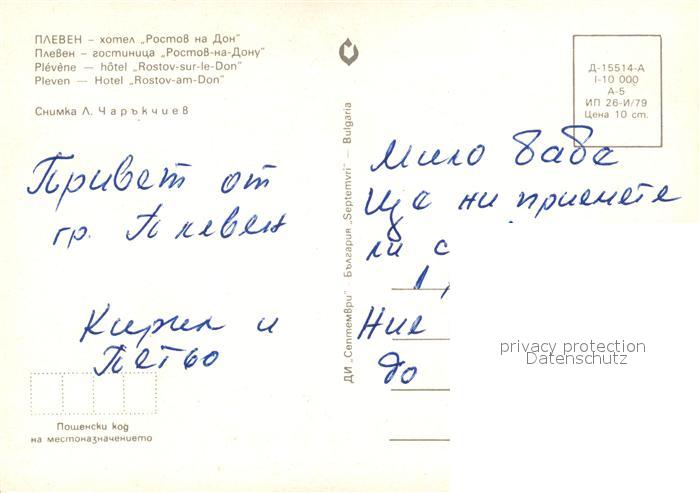 ПЛЕВЕН – хотел „Ростов на Дон“
Плевен – гостиница „Ростов-на-Дону“
Plévène — hôtel „Rostov-sur-le-Don“
Pleven — Hotel „Rostov-am-Don“
Снимка Л. Чаръкчиев
Привет от
гр. Плевен
Кирил и
Петьо
Пощенски код
на местоназначението
ДИ „Септември“ – България „Septemvri“ – Bulgaria
Д-15514-А
I-10 000
А-5
ИП 26-И/79
Цена 10 ст.
Мило бабе
Ще ни приемете
ли с
Ние
до
privacy protection
Datenschutz